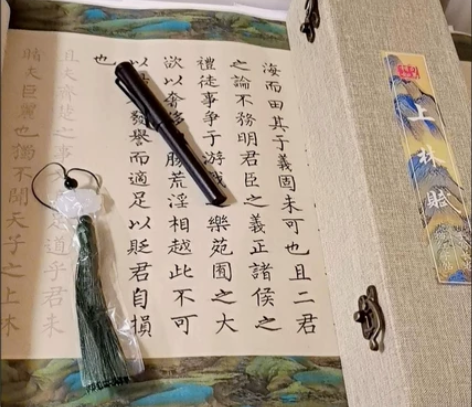 海而田其于義固未可也且二君
之論不務明君臣之義正諸侯之
禮徒事争于游戲樂苑囿之大
欲以奢侈勝荒淫相越此不可
以發譽而適足以貶君自損
也
且夫齊楚之事足道乎君未
睹夫巨麗也獨不聞天子之上林
上林賦